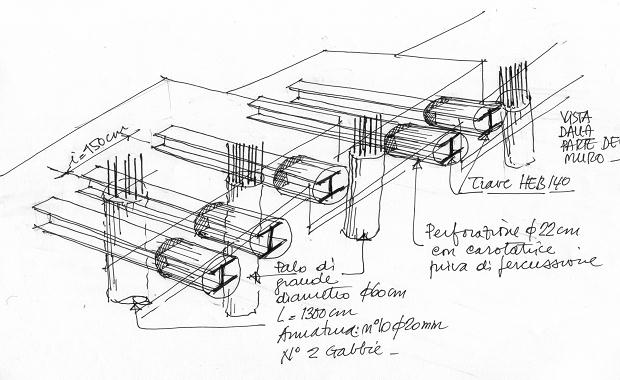 i=150cm
VISTA
DALLA
PARTE DEL
MURO
Trave HEB 140
Perforazione φ 22cm
con carotatrice
priva di percussione
Palo di
grande
diametro φ60cm
L=1300cm
Armatura: n°10 φ20mm
N° 2 Gabbie